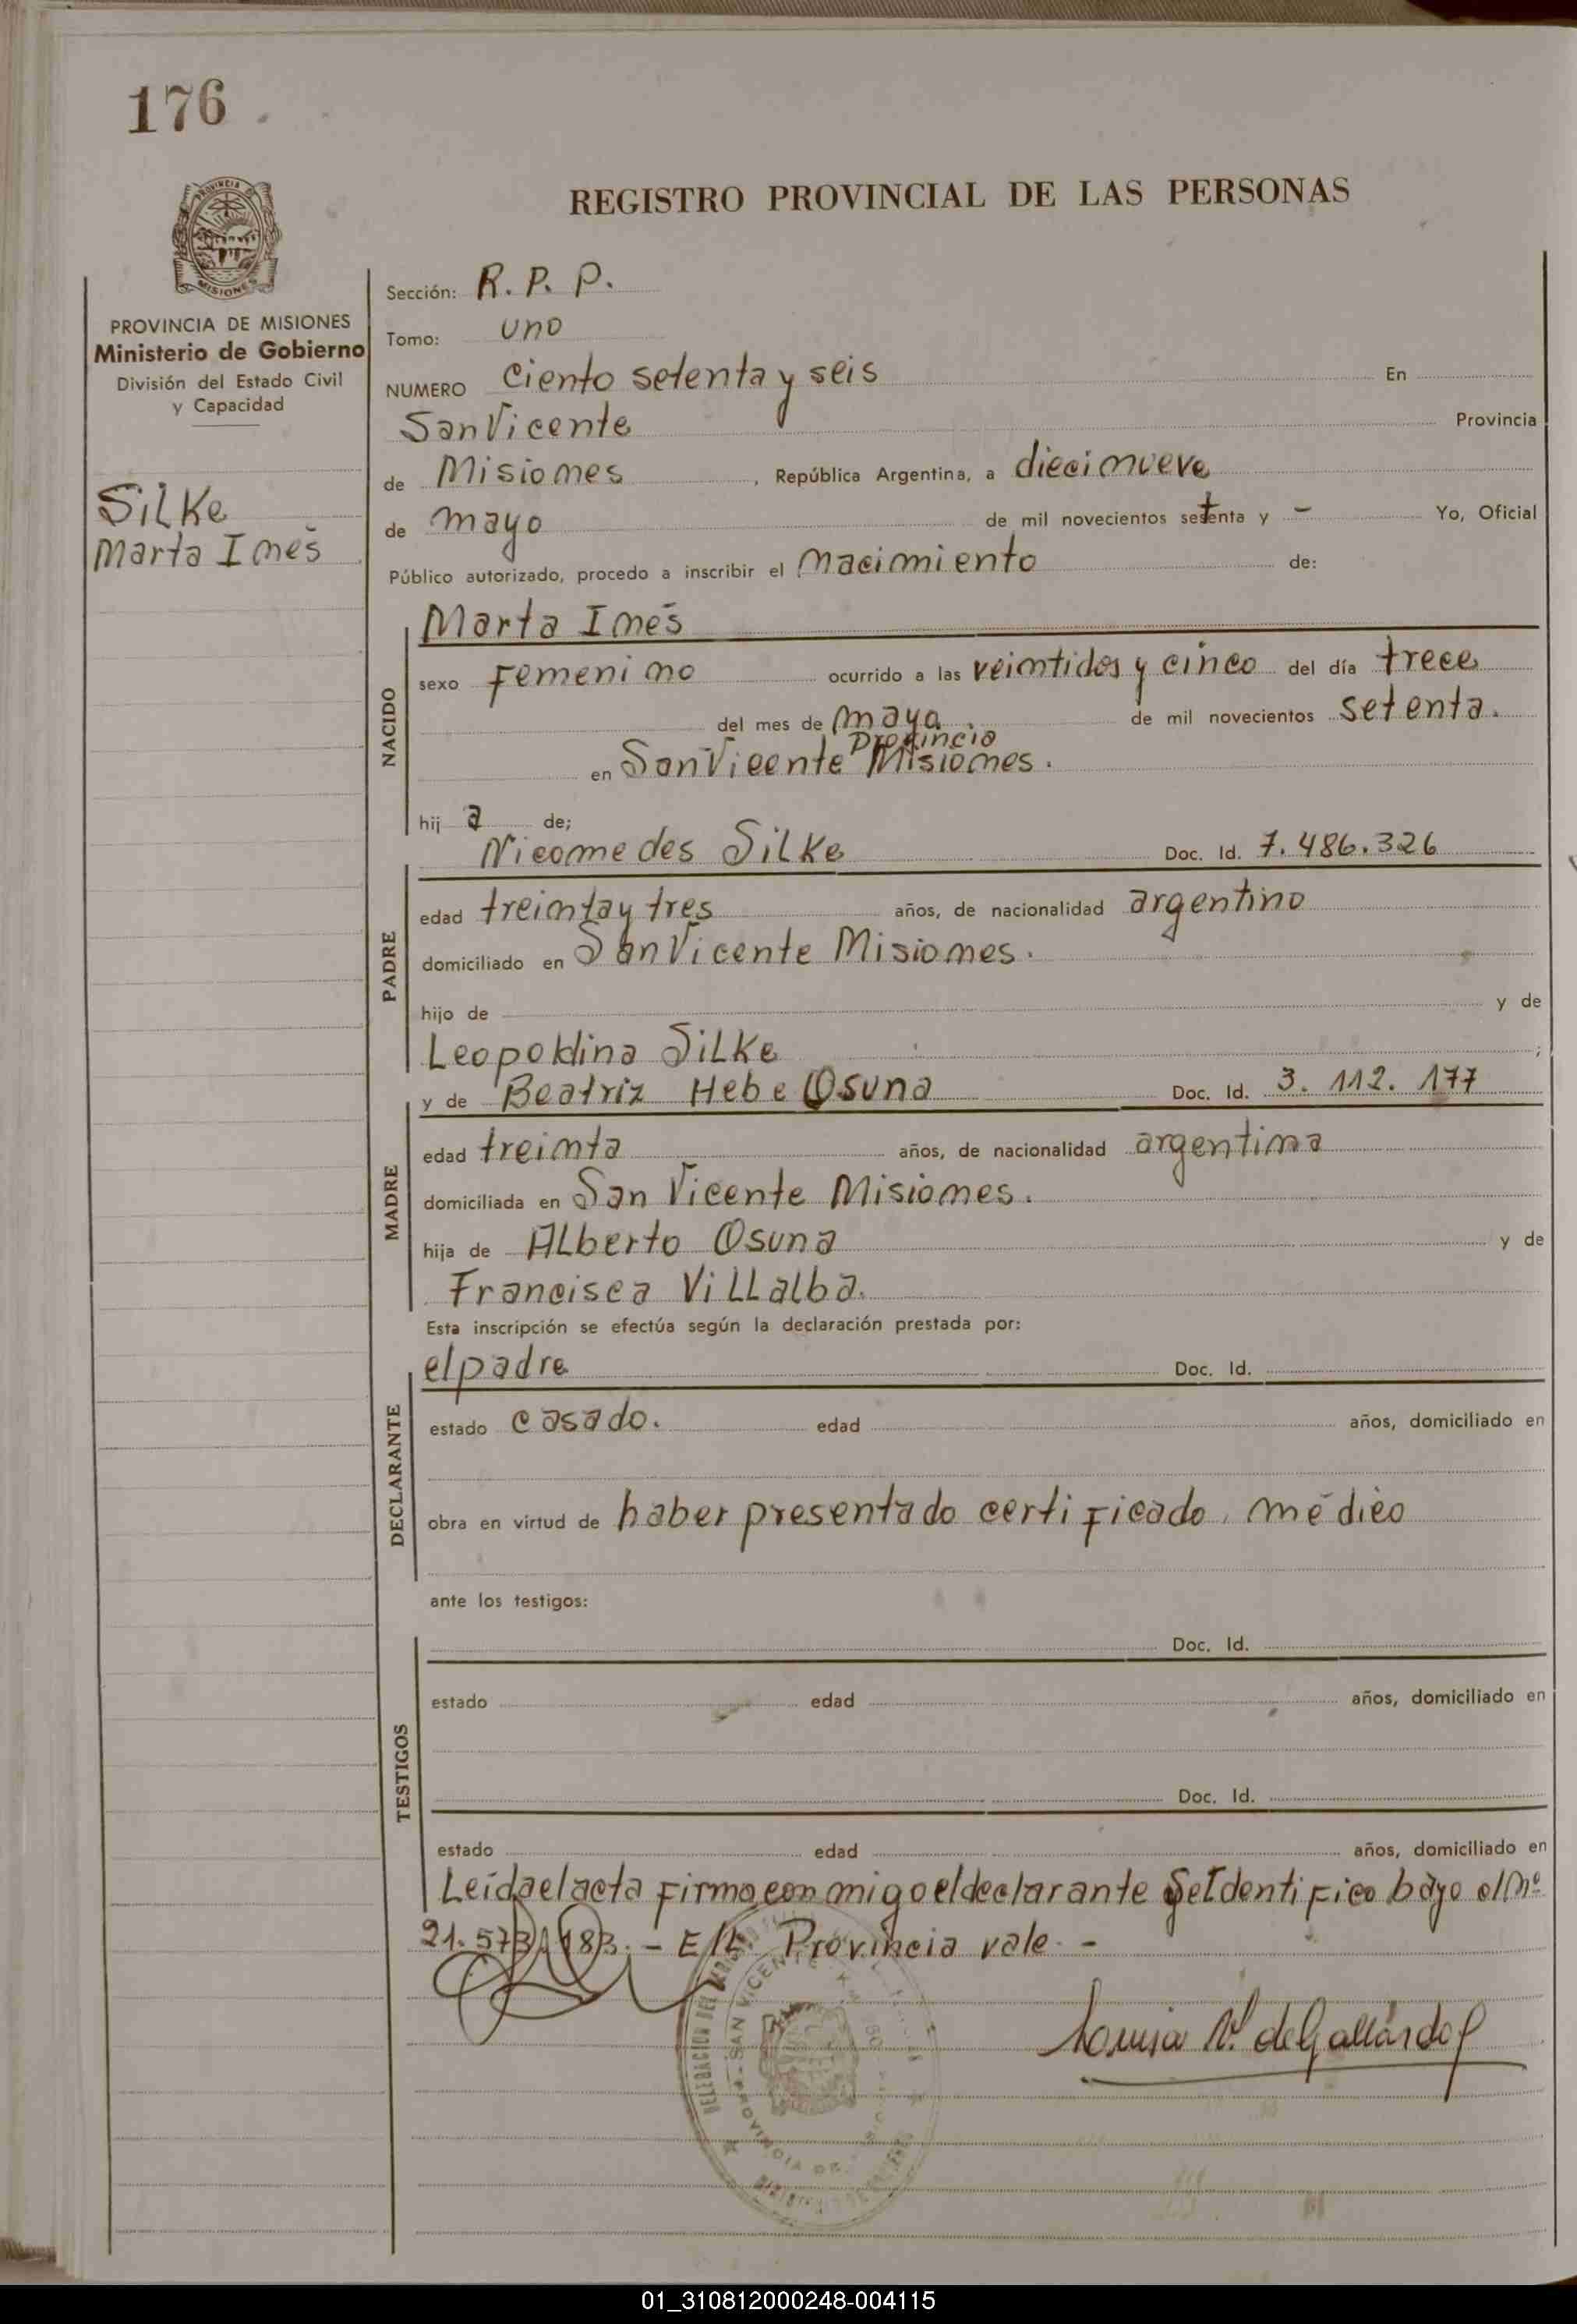 176
REGISTRO PROVINCIAL DE LAS PERSONAS
PROVINCIA DE MISIONES
Ministerio de Gobierno
División del Estado Civil
y Capacidad
Silke
Marta Inés
Sección: R. P. P.
Tomo: uno
NUMERO Ciento setenta y seis En
San Vicente Provincia
de Misiones, República Argentina, a diecinueve
de mayo de mil novecientos setenta y - Yo, Oficial
Público autorizado, procedo a inscribir el nacimiento de:
NACIDO
Marta Inés
sexo Femenino ocurrido a las veintidos y cinco del día trece
del mes de mayo de mil novecientos setenta.
Provincia
en San Vicente Misiones.
hij a de;
PADRE
Nicomedes Silke Doc. Id. 7.486.326
edad treinta y tres años, de nacionalidad argentino
domiciliado en San Vicente Misiones.
hijo de y de
Leopoldina Silke ;
MADRE
y de Beatriz Hebe Osuna Doc. Id. 3. 112. 177
edad treinta años, de nacionalidad argentina
domiciliada en San Vicente Misiones.
hija de Alberto Osuna y de
Francisca Villalba.
Esta inscripción se efectúa según la declaración prestada por:
DECLARANTE
el padre Doc. Id.
estado casado. edad años, domiciliado en
obra en virtud de haber presentado certificado médico
ante los testigos:
TESTIGOS
Doc. Id.
estado edad años, domiciliado en
Doc. Id.
estado edad años, domiciliado en
Leída el acta firma con migo el declarante Se Identifico bajo el Nº
21.573.183. - E/L. Provincia vale -
SAN VICENTE
PROVINCIA DE
Louisa V. de Gallardo
01_310812000248-004115